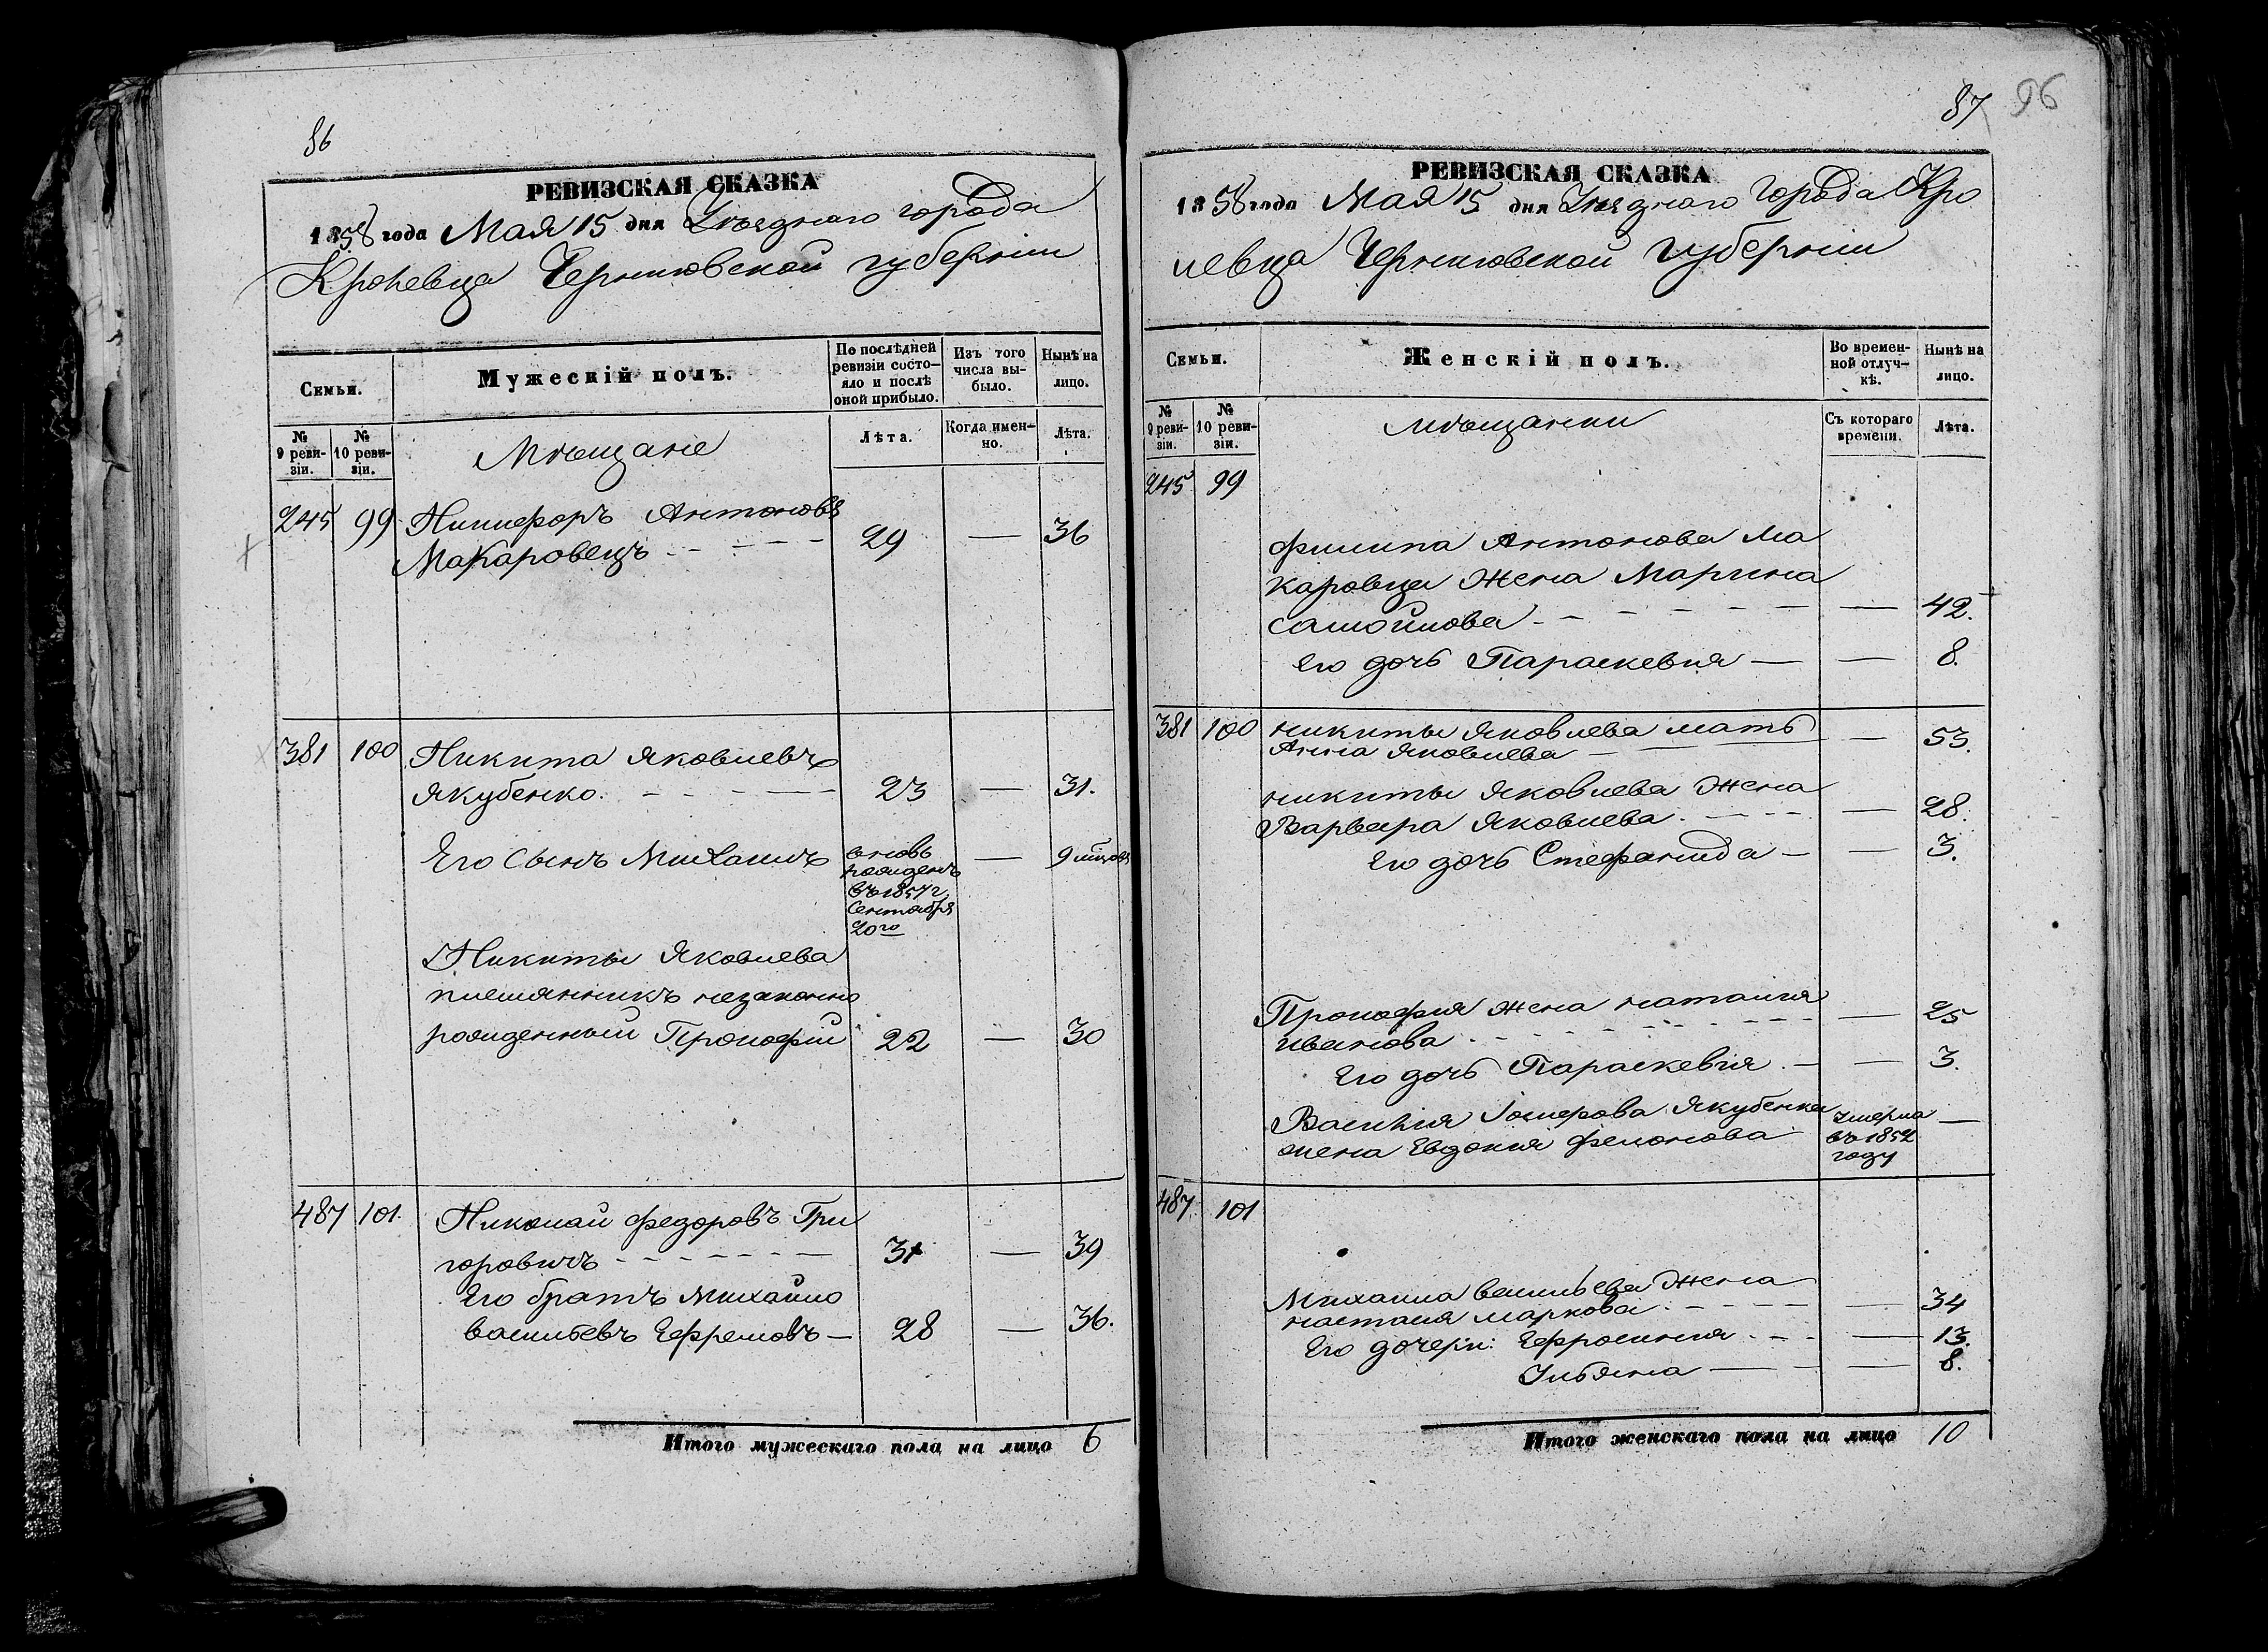 86
РЕВИЗСКАЯ СКАЗКА
1858 года Мая 15 дня Уѣзднаго города
Кролевца Черниговской губерніи
Семьи.
Мужескій полъ.
По послѣдней ревизіи состояло и послѣ оной прибыло.
Изъ того числа выбыло.
Нынѣ на лицо.
№ 9 ревизіи.
№ 10 ревизіи.
Мѣщане
Лѣта.
Когда именно.
Лѣта.
245 99 Никифоръ Антоновъ
Макаровецъ 29 — 36
381 100 Никита Яковлевъ
Якубенко. 23 — 31.
Его сынъ Михаилъ вновь — 9 мѣсяцовъ
рожденъ
въ 1857 г.
Сентября
20го
Никиты Яковлева
племянникъ незаконно
рожденный Прокофій 22 — 30
487 101. Николай Федоровъ Гри
горовичъ 31 — 39
Его братъ Михайло
Васильевъ Ефремовъ — 28 — 36.
Итого мужескаго пола на лицо 6
87 96
РЕВИЗСКАЯ СКАЗКА
1858 года Мая 15 дня Уѣзднаго города Кро
левца Черниговской губерніи
Семьи.
Женскій полъ.
Во временной отлучкѣ.
Нынѣ на лицо.
№ 9 ревизіи.
№ 10 ревизіи.
мѣщанки
Съ котораго времени.
Лѣта.
245 99
Филипа Антонова Ма
каровца жена Марина
Самойлова — 42.
Его дочь Параскевия — — 8.
381 100 Никиты Яковлева мать
Анна Яковлева — 53.
Никиты Яковлева жена
Варвара Яковлева. — 28.
Его дочь Стефанида — — 3.
Прокофия жена Наталия
Иванова. — 25
Его дочь Параскевия. — — 3.
Василия Якубенка Умерла —
жена Евдокия въ 1852
году
487 101
Михаила Васильева жена
Настасия Маркова. — 34
Его дочери: Ефросиния — 13.
Ульяна — — 8.
Итого женскаго пола на лицо 10